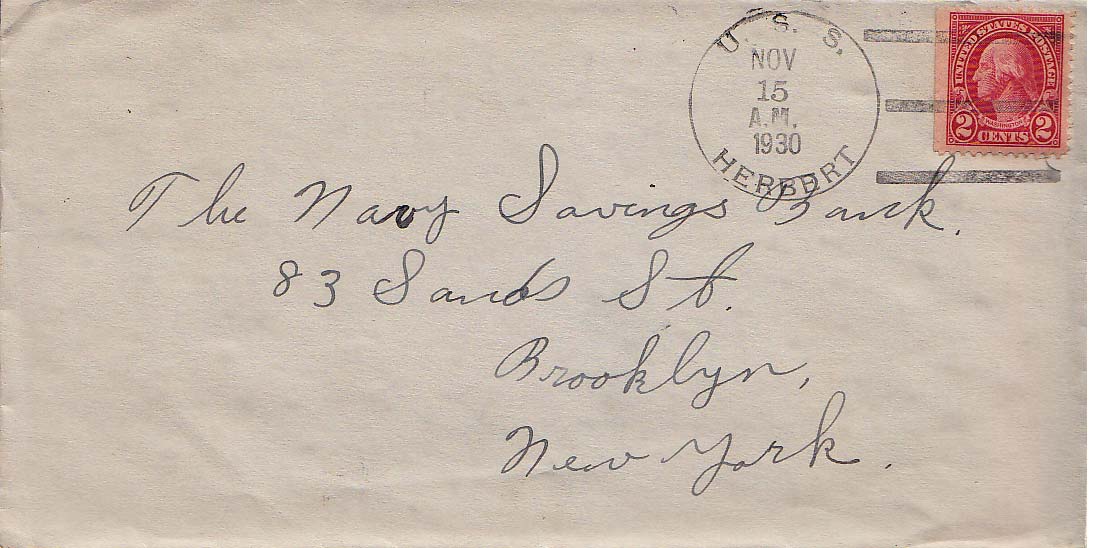 U. S. S.
NOV
15
A.M.
1930
HERBERT
UNITED STATES POSTAGE
WASHINGTON
2 CENTS 2
The Navy Savings Bank.
83 Sands St.
Brooklyn,
New York.